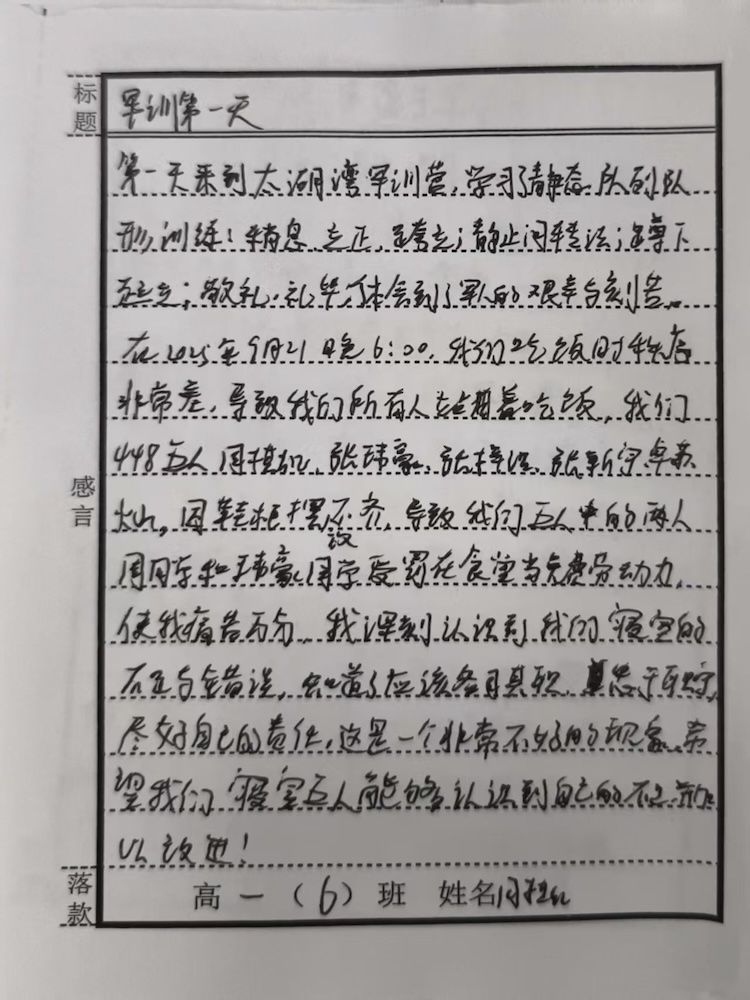 标题
军训第一天
第一天来到太湖湾军训营,学习了静态队列队
形训练!稍息 立正,跨立;静止间转法;蹲下
起立;敬礼.礼毕,体会到了军人的艰辛与刻苦。
在2025年9月21日晚6:00,我们吃饭时秩序
非常差,导致我们所有人站着吃饭,我们
448五人 张玮豪 张 张新宇
因鞋柜摆不齐,导致我们五人中的两人
周同学和玮豪同学受罚在食堂当免费劳动力,
使我痛苦万分,我深刻认识到我们寝室的
不足与错误,知道了应该各司其职,忠于职守,
尽好自己的责任,这是一个非常不好的现象,希
望我们寝室五人能够认识到自己的不足加
以改进!
感言
落款
高一(6)班 姓名周